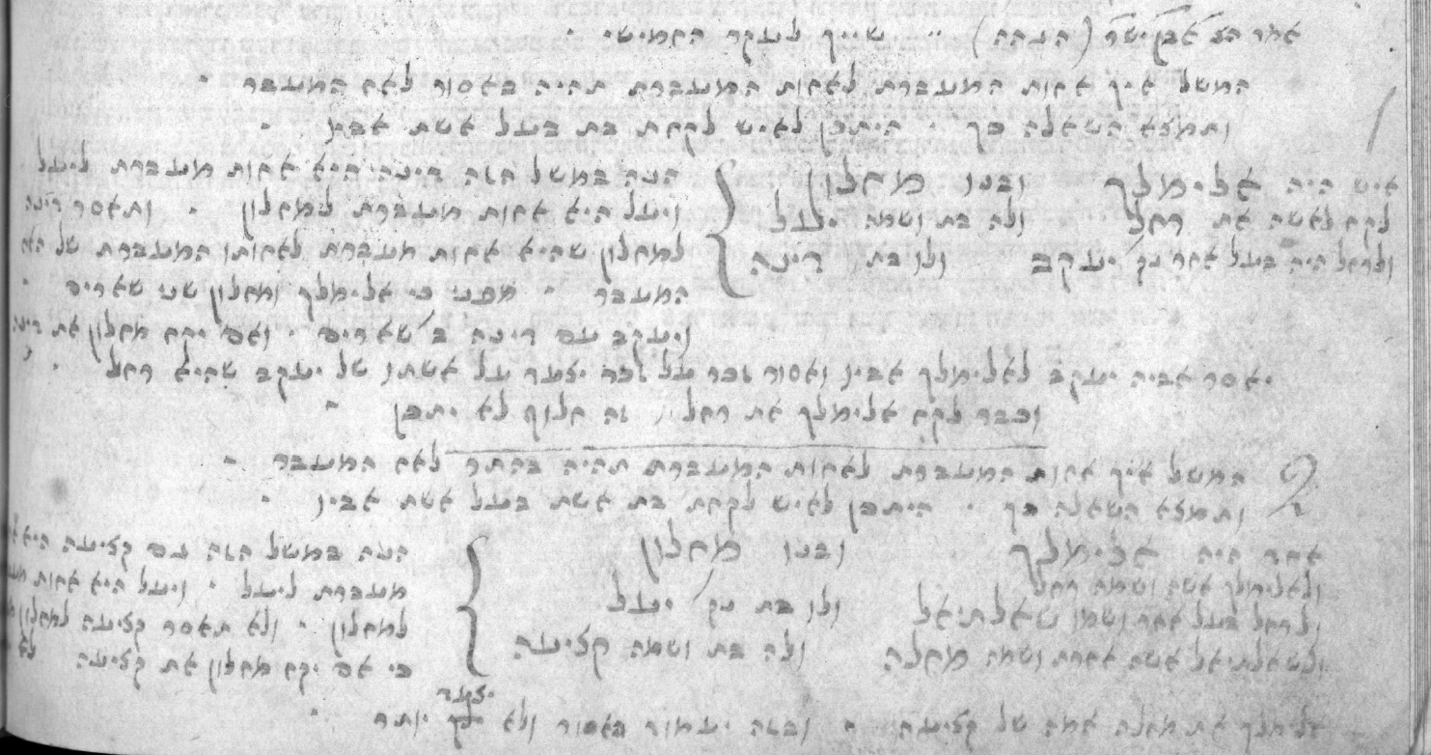 שייך לעקר החמישי
המשל איך אחות המעברת לאחות המעברת תהיה באסור לאח המעבר
ותמצא השאלה כך היתכן לאיש לקחת בת בעל אשת אביו
איש היה אלימלך ובנו מחלון
לקח לאשה את רחל ולה בת ושמה יעל
ולרחל היה בעל אחר נק׳ יעקב ולו בת׳ דינה
הנה במשל הזה דינה היא אחות מעברת ליעל
ויעל היא אחות מעברת למחלון ותאסר דינה
למחלון שהיא אחות מעברת לאחותו המעברת של האח
המעבר מפני כי אלימלך ומחלון שני שארים
ויעקב עם דינה ב׳ שארים ואם יקח מחלון את דינה
יאסר אביה יעקב לאלימלך אביו ואסור זכר על זכר יצטרך על אשתו של יעקב שהיא רחל
וכבר לקח אלימלך את רחל זה חלוף לא יתכן
המשל איך אחות המעברת לאחות המעברת תהיה בהתר לאח המעבר
ותמצא השאלה כך היתכן לאיש לקחת בת אשת בעל אשת אביו
אחד היה אלימלך ובנו מחלון
ולאלימלך אשה ושמה רחל ולו בת נק׳ יעל
ולרחל בעל אחר ושמו שאלתיאל
ולשאלתיאל אשה אחרת ושמה מחלה ולה בת ושמה קציעה
הנה במשל הזה עם קציעה היא
מעברת ליעל ויעל היא אחות
למחלון ולא תאסר קציעה למחלון
כי אם יקח מחלון את קציעה לא
אלימלך את מחלה אמה של קציעה ובזה יעמוד האסור ולא יצטרך יותר